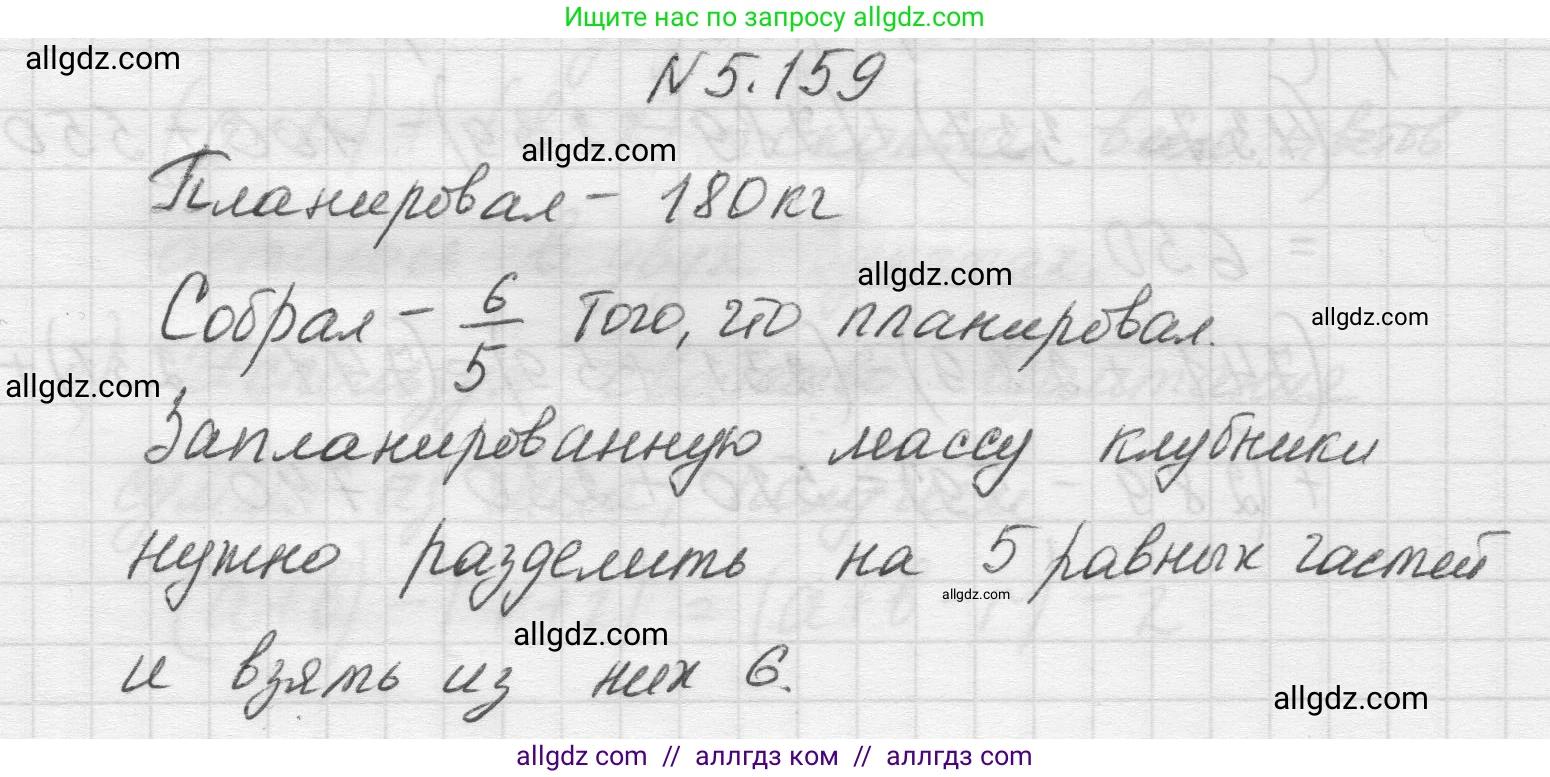 Ищите нас по запросу allgdz.com
allgdz.com
N 5.159
allgdz.com
Планировал - 180 кг
allgdz.com
Собрал - 6/5 того, что планировал.
allgdz.com
allgdz.com
Запланированную массу клубники
нужно разделить на 5 равных частей
allgdz.com
allgdz.com
и взять из них 6.
allgdz.com
allgdz com // аллгдз ком // allгдз com